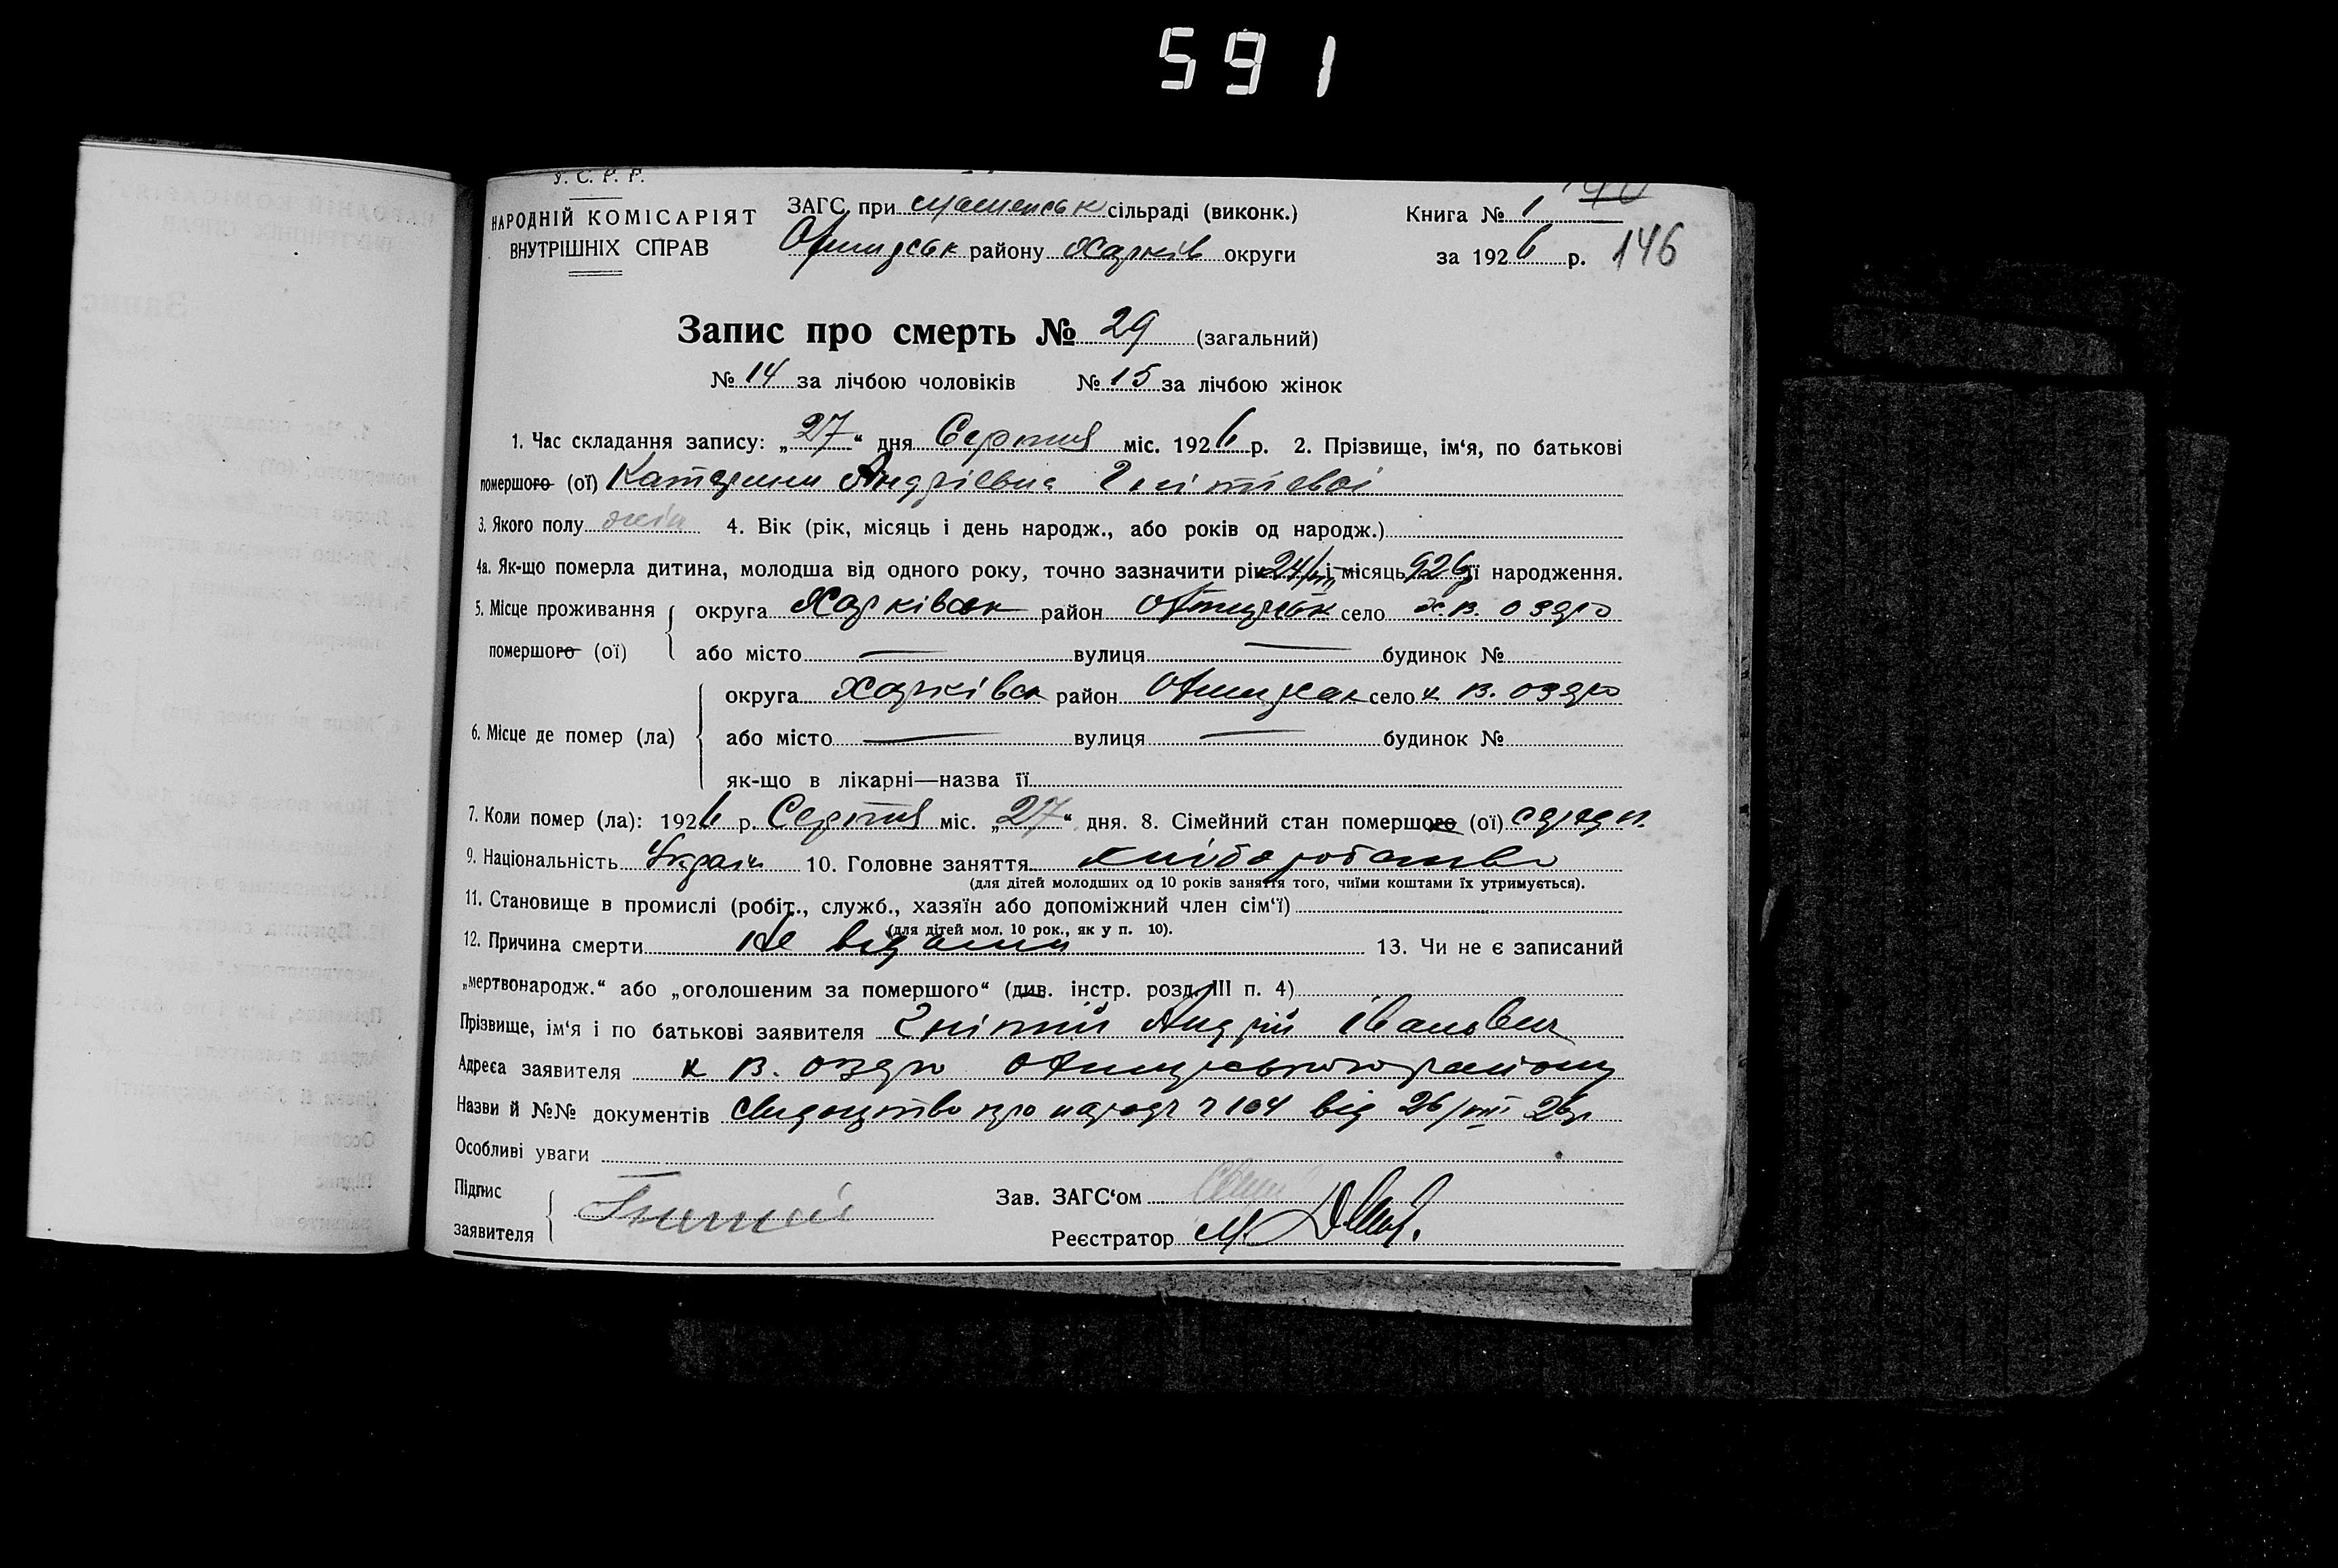 591
У. С. Р. Р.
НАРОДНІЙ КОМІСАРІЯТ
ВНУТРІШНІХ СПРАВ
ЗАГС при сільраді (виконк.)
району Харків округи
Книга № 1
за 1926 р. 146
Запис про смерть № 29 (загальний)
№ 14 за лічбою чоловіків № 15 за лічбою жінок
1. Час складання запису: „27“ дня Серпня міс. 1926 р. 2. Прізвище, ім‘я, по батькові
помершого (ої) Катерини Андріевна
3. Якого полу жін 4. Вік (рік, місяць і день народж., або років од народж.)
4а. Як-що померла дитина, молодша від одного року, точно зазначити рік 24/VIII і місяць 926 її народження.
5. Місце проживання помершого (ої)
округа Харківськ район село х. В. озеро
або місто — вулиця — будинок №
6. Місце де помер (ла)
округа Харківск район село х В. озеро
або місто — вулиця — будинок №
як-що в лікарні—назва її
7. Коли помер (ла): 1926 р. Серпня міс. „27“ дня. 8. Сімейний стан помершого (ої)
9. Національність Україн 10. Головне заняття хліборобство
(для дітей молодших од 10 років заняття того, чиїми коштами їх утримується).
11. Становище в промислі (робіт., служб., хазяїн або допоміжний член сім‘ї)
(для дітей мол. 10 рок., як у п. 10).
12. Причина смерти Не відома 13. Чи не є записаний
„мертвонародж.“ або „оголошеним за помершого“ (див. інстр. розд. III п. 4)
Прізвище, ім‘я і по батькові заявителя Гнітій Андрій Іванович
Адреса заявителя х В. озеро району
Назви й №№ документів Свидоцтво про народж 104 від 26/VIII 26р
Особливі уваги
Підпис
заявителя
Зав. ЗАГС‘ом
Реєстратор